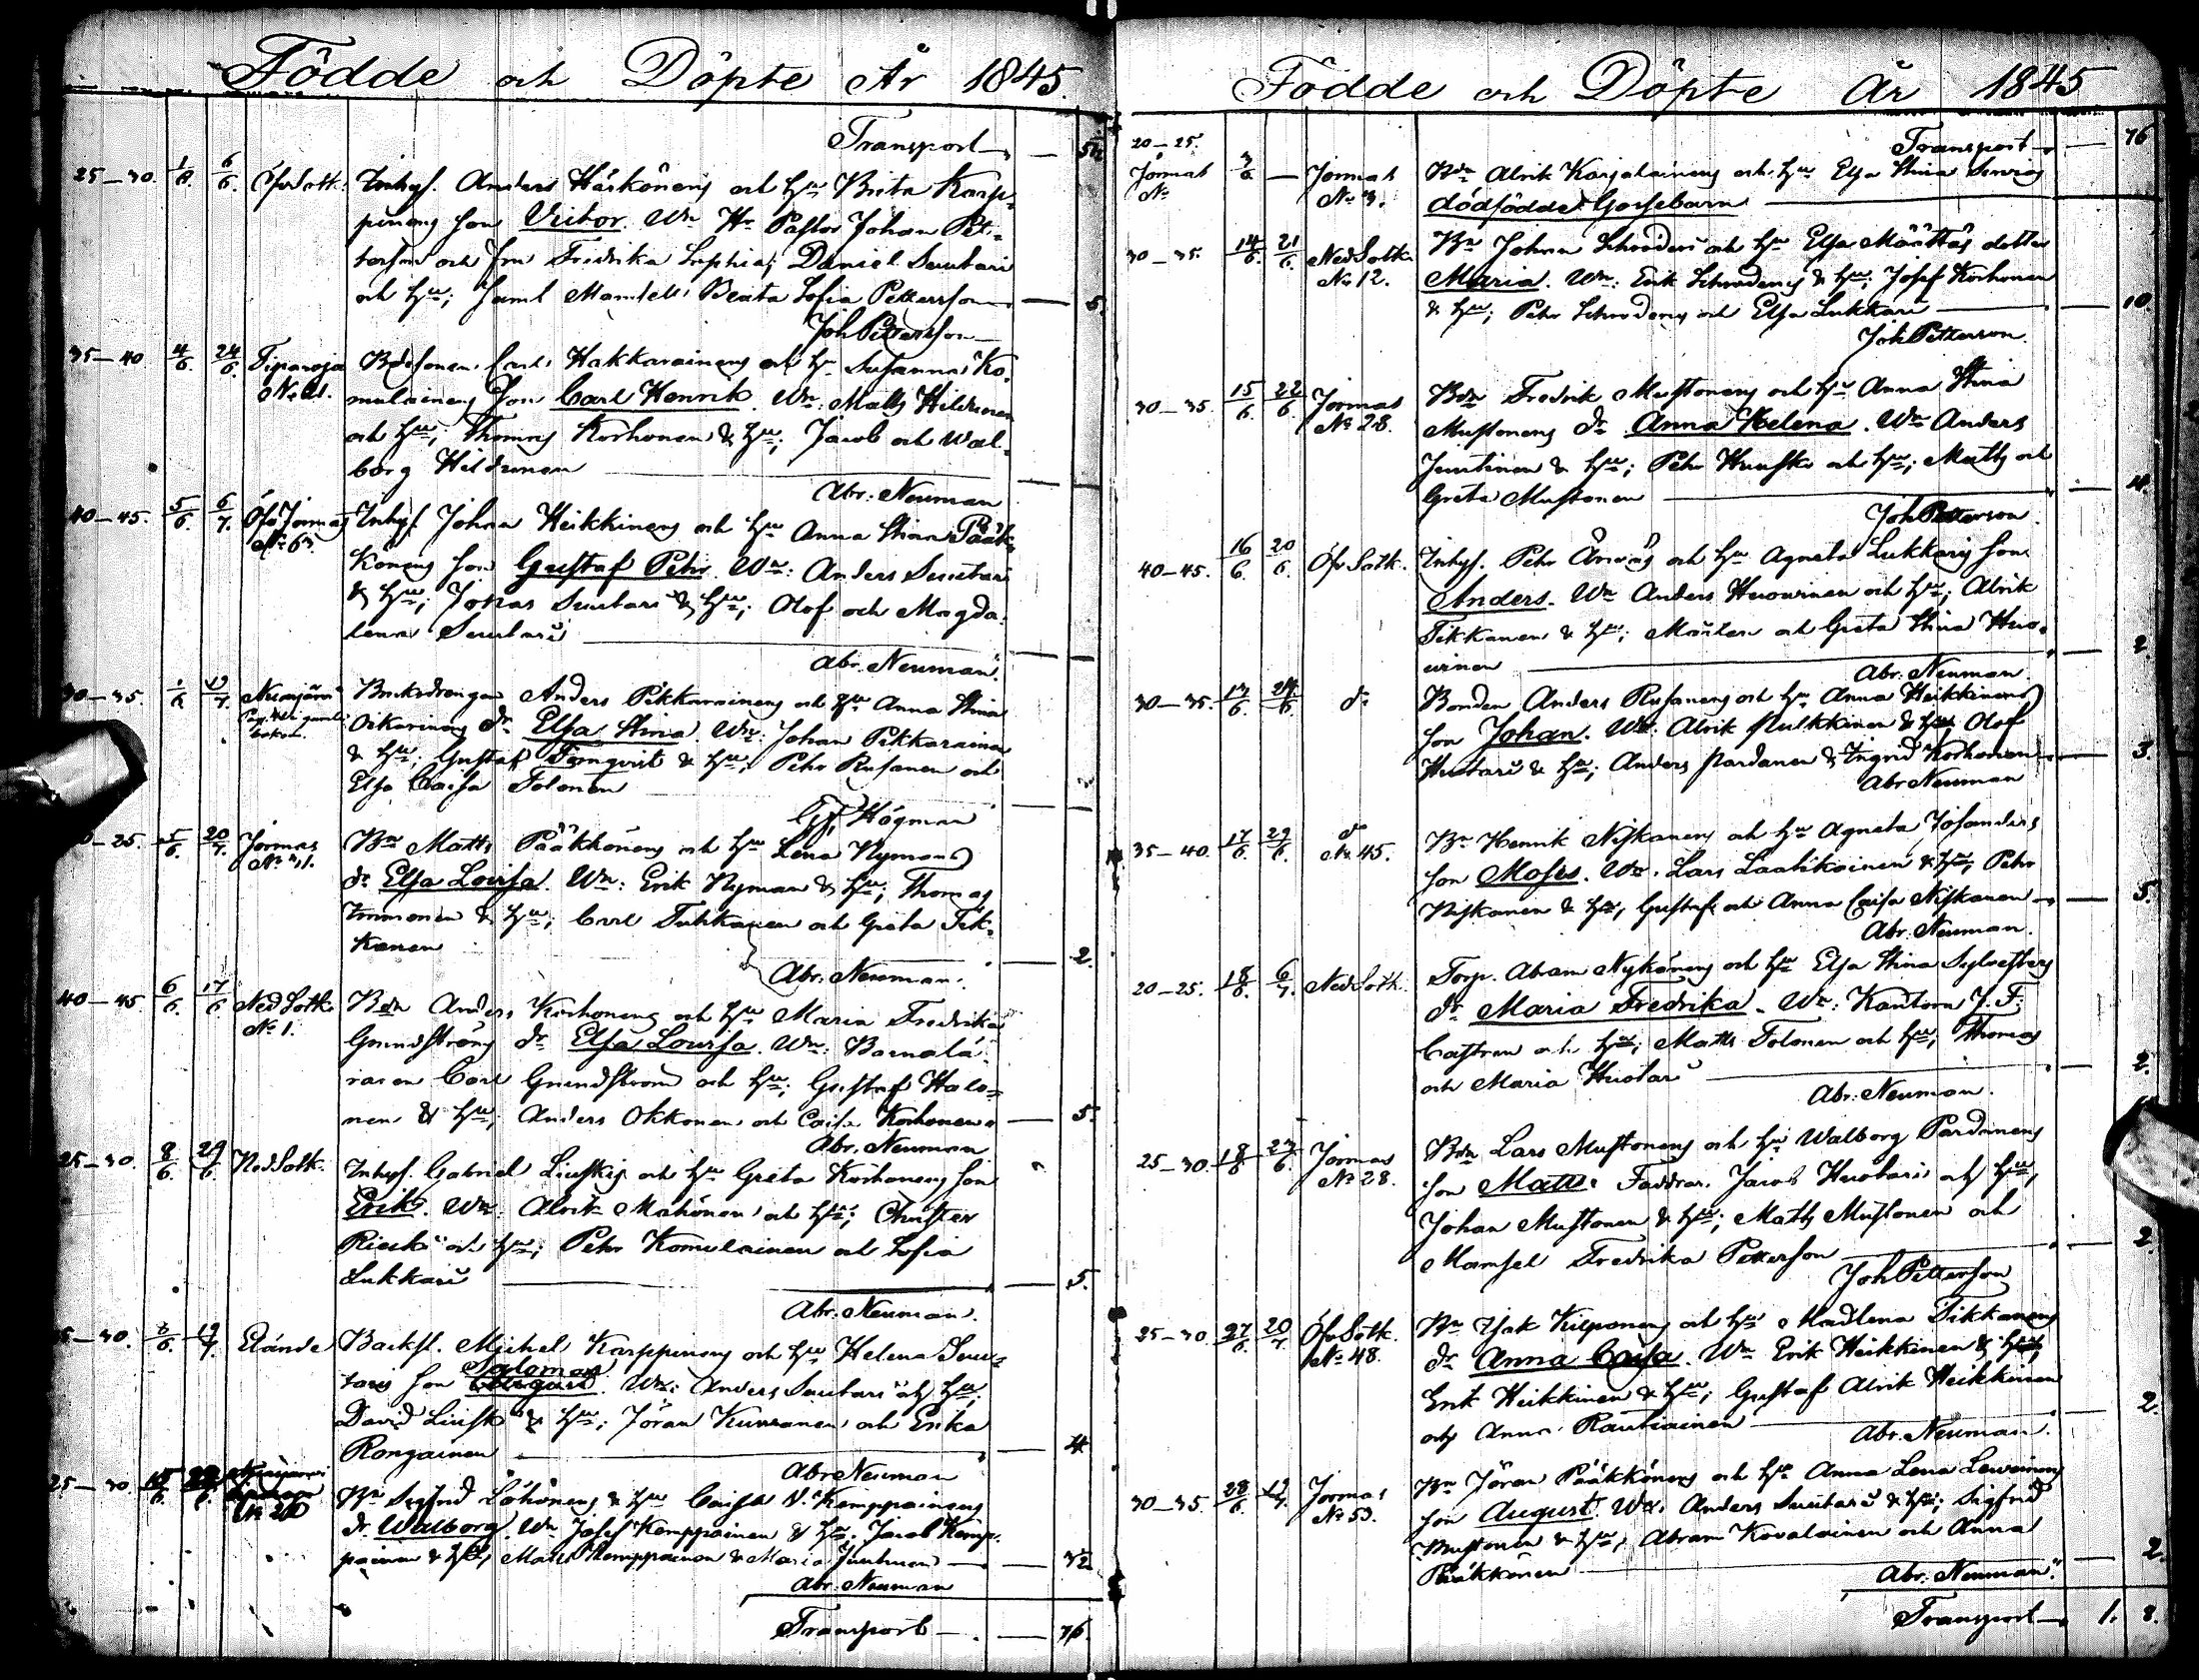 Födde och Döpte År 1845.
Transport — 5
25—30. 1/6 6/6 Öfv Sotk. Inhys. Anders Härkönens och Hu Brita Karp-
pinens son Victor. Wn Hr Pastor Johan Pet-
terson och fru Fredrika Sophia; Daniel Suutari
och Hu; Mamsell Beata Sofia Pettersson — 5.
Joh Pettersson
35—40 4/6 24/6 Tiparoja Bdesonen Carl Hakkarainens och Hu Susanna Ko-
No 21. mulainens son Carl Henrik. Wn: Matts Hildunen
och Hu; Thomas Korhonen & Hu; Jacob och Wal-
borg Hildunen
Abr: Neuman
40—45. 5/6 6/7. Öfv Jormas Inhys. Johan Heikkinens och Hu Anna Stina Pääk-
No 63. könens son Gustaf Petr. Wn: Anders Suutari
& Hu; Jonas Suutari & Hu; Olof och Magda-
lena Suutari
Abr. Neuman.
30—35. /6 19/7. Bruksdrengen Anders Pikkarainens och Hu Anna Stina
Oikarinens dr Elsa Stina. Wn: Johan Pikkarainen
& Hu; Gustaf Tornqvist & Hu; Petr Rusanen och
Elsa Caisa Tolonen
Högman
—25. 5/6. 20/7. Jormas Bn Matts Pääkkönens och Hu Lena Nymans
dr Elsa Lovisa. Wn: Erik Nyman & Hu; Thomas
Immonen & Hu; Carl Tikkanen och Greta Tik-
kanen — 2.
Abr. Neuman.
40—45 6/6 17/6 Ned Sotk. Bdn Anders Korhonens och Hu Maria Fredrika
No 1. Grundströms dr Elsa Lovisa. Wn: Barnalä-
raren Carl Grundström och Hu; Gustaf Halo-
nen & Hu; Anders Okkonen och Caisa Korhonen — 5.
Abr. Neuman
25—30. 8/6 29/6 Ned Sotk. Inhys. Gabriel Liuskis och Hu Greta Korhonens son
Erik. Wn: Alrik Mahönen och Hu; Christer
Rieck och Hu; Petr Komulainen och Sofia
Lukkari — 5.
Abr. Neuman.
—30. 8/6. 19/7. Elände Backst. Michel Karppinens och Hu Helena Suu-
taris son Salomon. Wn: Anders Suutari och Hu;
David Liuski & Hu; Jöran Kurranen och Erika
Rongainen — 4
Abr Neuman
25—30 Bn Sigfrid Löhönens & Hu Caisa Kemppainens
No 20 dr Walborg. Wn Josef Kemppainen & Hu. Jacob Kemp-
painen & Hu, Matts Kemppainen & Maria Juntunen
Abr. Neuman
Transport — 76.
Födde och Döpte År 1845
Transport — 76
20—25.
Jormas 3/6 — Jormas Bdn Alrik Karjalainens och Hu Elsa Stina
No dödfödde Gossebarn
30—35. 14/6. 21/6. Ned Sotk. Bn Johan Schroderi och Hu Elsa Määttäs dotter
No 12. Maria. Wn: Erik Schroderus & Hu; Josef Korhonen
& Hu; Petr Schroderus och Elsa Lukkari — 10.
Joh Petterson.
30—35. 15/6 22/6. Jormas Bdn Fredrik Mustonens och Hu Anna Stina
No 28. Mustonens dr Anna Helena. Wn Anders
Juntinen & Hu; Petr Huusko och Hu; Matts och
Greta Mustonen — 4.
Joh Petterson.
40—45. 16/6. 20/6. Öfv Sotk. Inhys. Petr och Hu Agneta Lukkaris son
Anders. Wn Anders Huovinen och Hu; Alrik
Tikkanen & Hu; Mårten och Greta Stina Huo-
vinen — 2.
Abr. Neuman.
30—35. 17/6. 24/6 do Bonden Anders Rusanens och Hu Anna Heikkinens
son Johan. Wn: Alrik Pulkkinen & Hu Olof
Huotari & Hu; Anders Pardanen & Ingrid Korhonen — 3.
Abr Neuman
35—40. 17/6 29/6. do Bn Henrik Niskanens och Hu Agneta Josanders
No 45. son Moses. Wn. Lars Laatikainen & Hu; Petr
Niskanen & Hu; Gustaf och Anna Caisa Niskanen — 5.
Abr. Neuman.
20—25. 18/6. 6/7. Ned Sotk. Torp. Abram Nykänens och Hu Elsa Stina Sylvesters
dr Maria Fredrika. Wn: Kantorn J. F.
Castren och Hu; Matts Tolonen och Hu; Thomas
och Maria Huotari — 2.
Abr. Neuman.
25—30 18/6 23/6. Jormas Bdn Lars Mustonens och Hu Walborg Pardanens
No 28. son Matts. Faddrar. Jacob Huotari och Hu,
Johan Mustonen & Hu; Matts Mustonen och
Mamsel Fredrika Petterson — 2.
Joh Petterson
25—30 27/6 20/7. Öfv Sotk. Bn Isak Kilponens och Hu Madlena Tikkanens
No 48. dr Anna Caisa. Wn Erik Heikkinen & Hu;
Erik Heikkinen & Hu; Gustaf Alrik Heikkinen
och Anna Rautiainen — 2.
Abr. Neuman.
30—35. 28/6 19/7. Jormas Bn Jöran Pääkkönens och Hu Anna Lena Leuvainens
No 53. son August. Wn. Anders Suutari & Hu; Sigfrid
Mustonen & Hu; Abram Kovalainen och Anna
Pääkkönen — 2.
Abr. Neuman.
Transport — 1. 8.